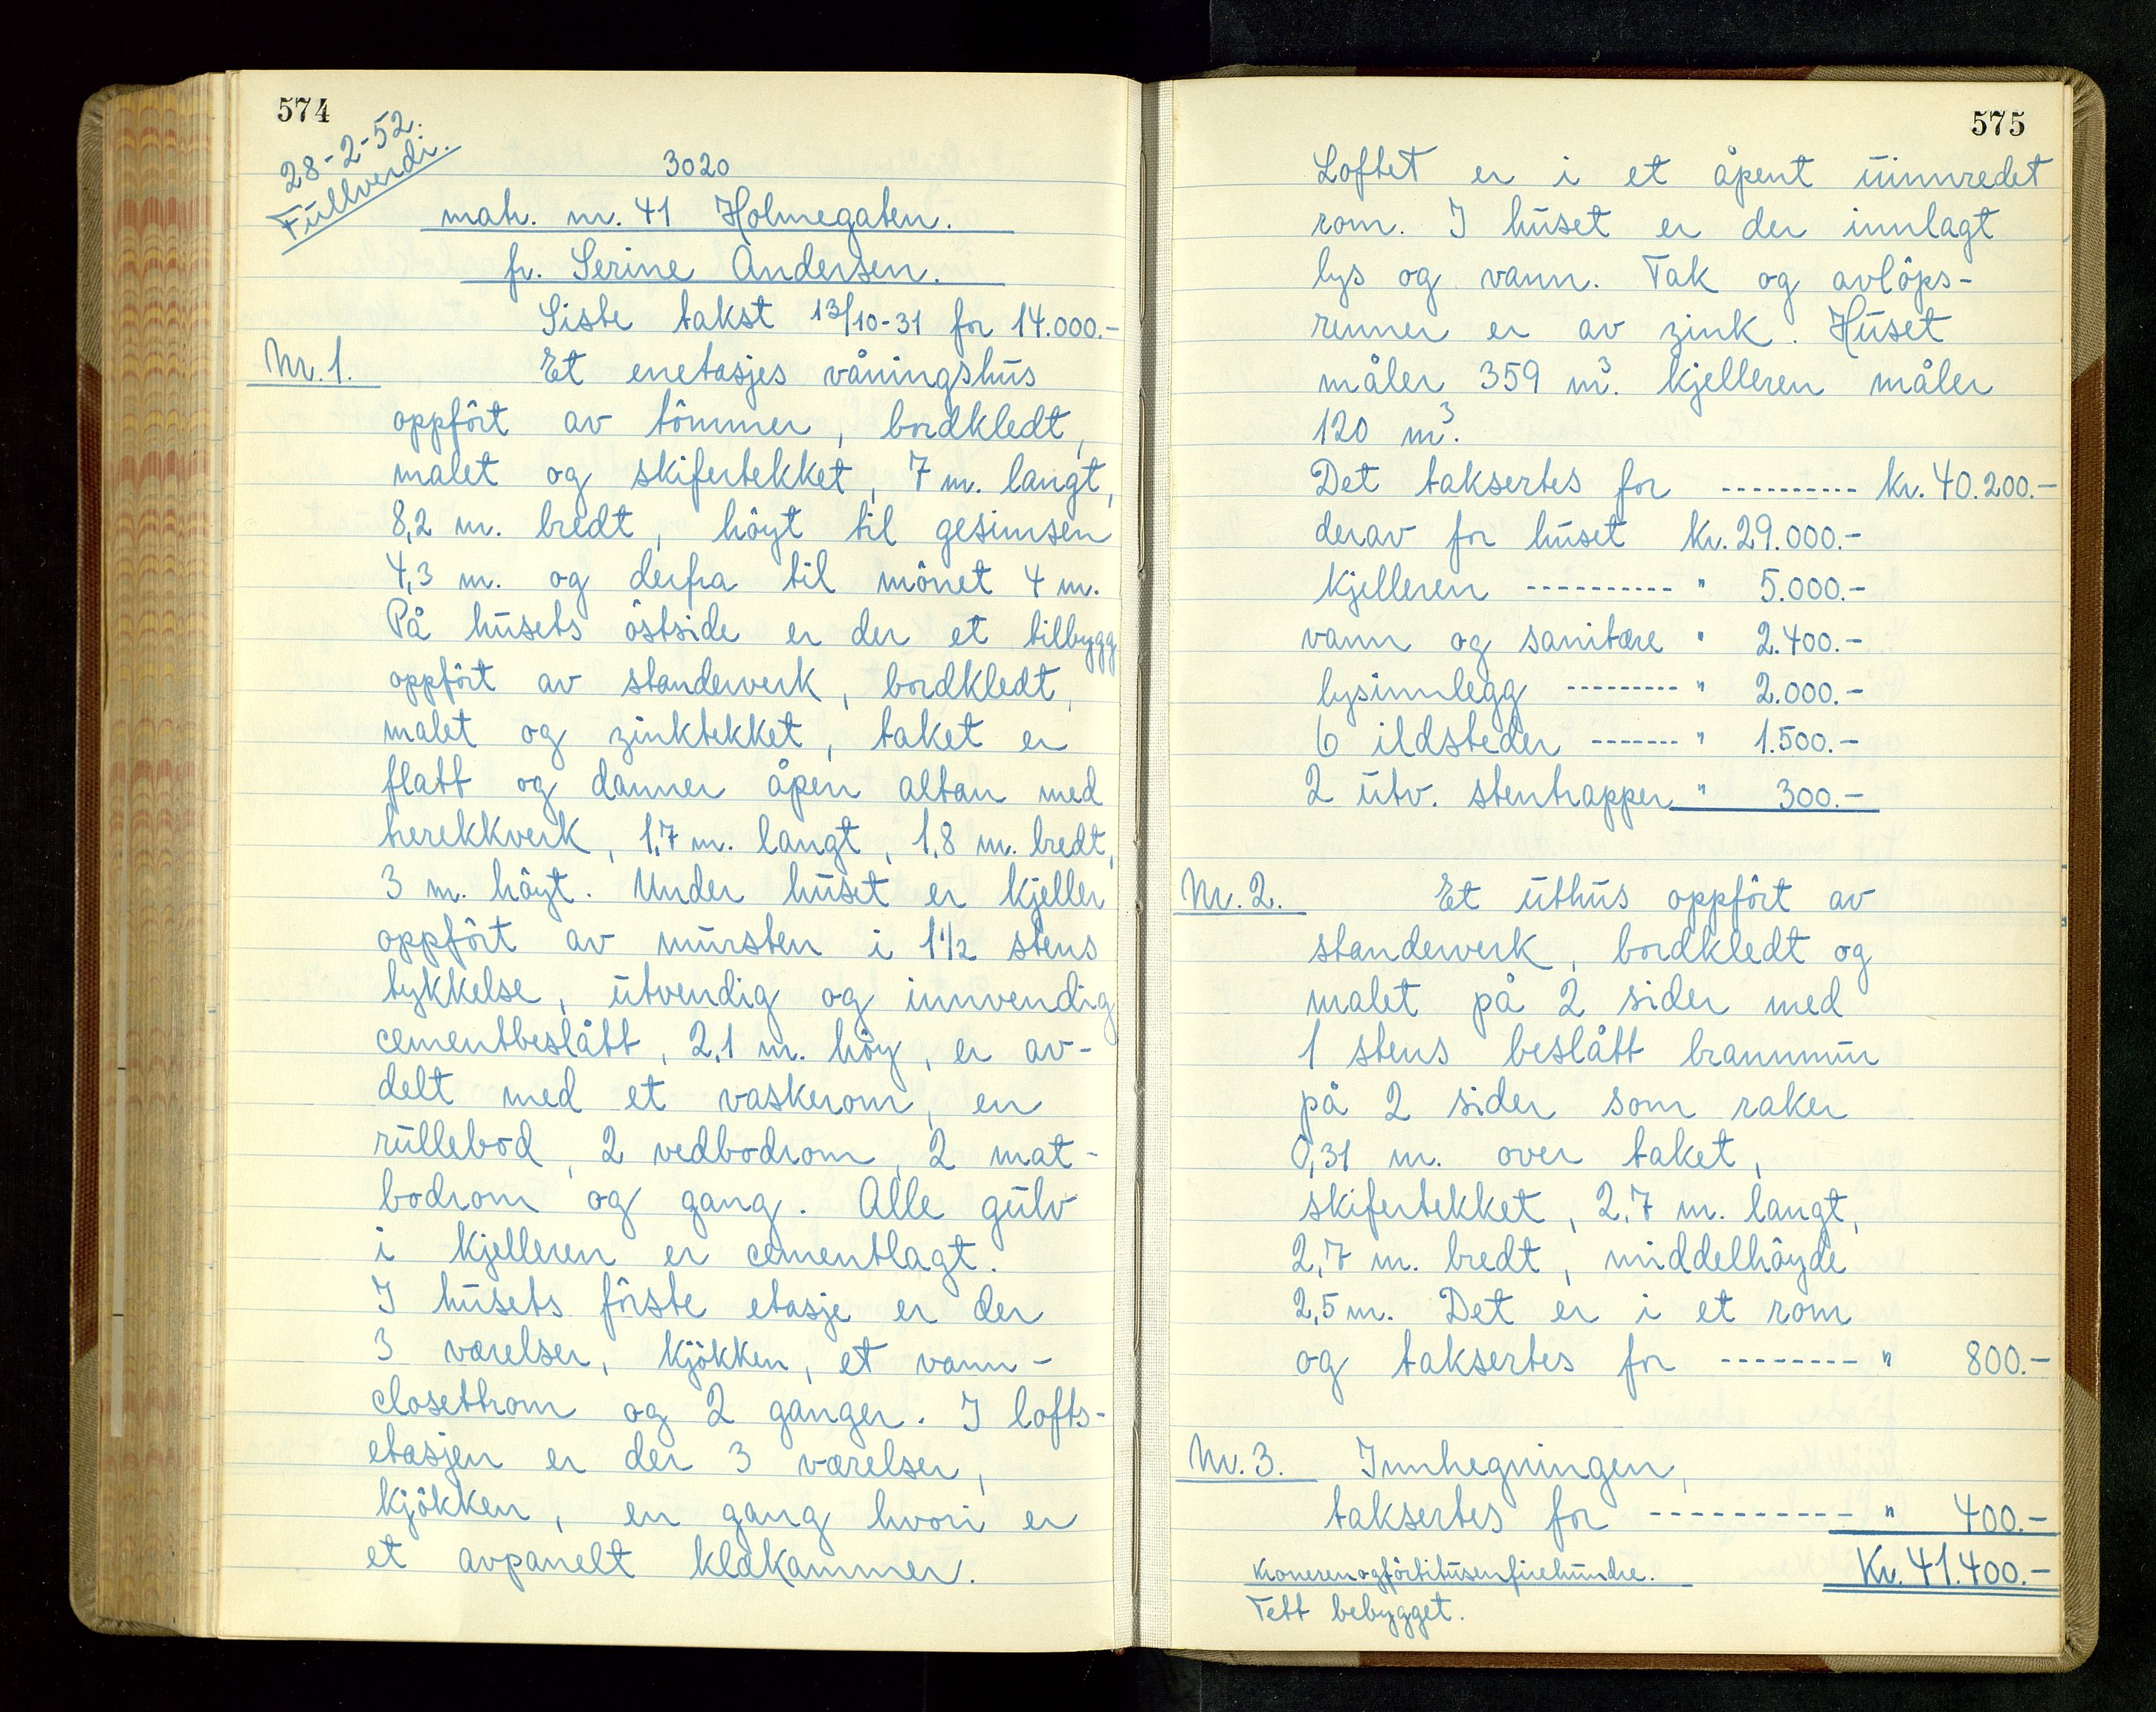 574
28-2-52.
Fullverdi.
3020
matr. nr. 41 Holmegaten.
fr. Serine Andersen.
Siste takst 13/10-31 for 14.000.-
Nr. 1. Et enetasjes våningshus
oppført av tömmer, bordkledt,
malet og skifertekket, 7 m. langt,
8,2 m. bredt, höyt til gesimsen
4,3 m. og derfra til mönet 4 m.
På husets östside er der et tilbygg
oppfört av standerverk, bordkledt,
malet og zinktekket, taket er
flatt og danner åpen altan med
trerekkverk, 1,7 m. langt, 1,8 m. bredt,
3 m. höyt. Under huset er kjeller
oppfört av mursten i 1 1/2 stens
tykkelse, utvendig og innvendig
cementbeslått, 2,1 m. höy, er av-
delt med et vaskerom, en
rullebod, 2 vedbodrom, 2 mat-
bodrom og gang. Alle gulv
i kjelleren er cementlagt.
I husets förste etasje er der
3 værelser, kjökken, et vann-
closettrom og 2 ganger. I lofts-
etasjen er der 3 værelser,
kjökken, en gang hvori er
et avpanelt klækammer.
575
Loftet er i et åpent uinnredet
rom. I huset er der innlagt
lys og vann. Tak og avlöps-
renner er av zink. Huset
måler 359 m³. Kjelleren måler
120 m³.
Det taksertes for ---------- kr. 40.200.-
derav for huset kr. 29.000.-
kjelleren ---------- " 5.000.-
vann og sanitære " 2.400.-
lysinnlegg --------- " 2.000.-
6 ildsteder ------- " 1.500.-
2 utv. stentrapper " 300.-
Nr. 2. Et uthus oppfört av
standerverk, bordkledt og
malet på 2 sider med
1 stens beslått brannmur
på 2 sider som raker
0,31 m. over taket,
skifertekket, 2,7 m. langt,
2,7 m. bredt, middelhöyde
2,5 m. Det er i et rom
og taksertes for -------- " 800.-
Nr. 3. Innhegningen,
taksertes for ----------- " 400.-
Kronerenogförtitusenfirehundre. Kr. 41.400.-
Tett bebygget.